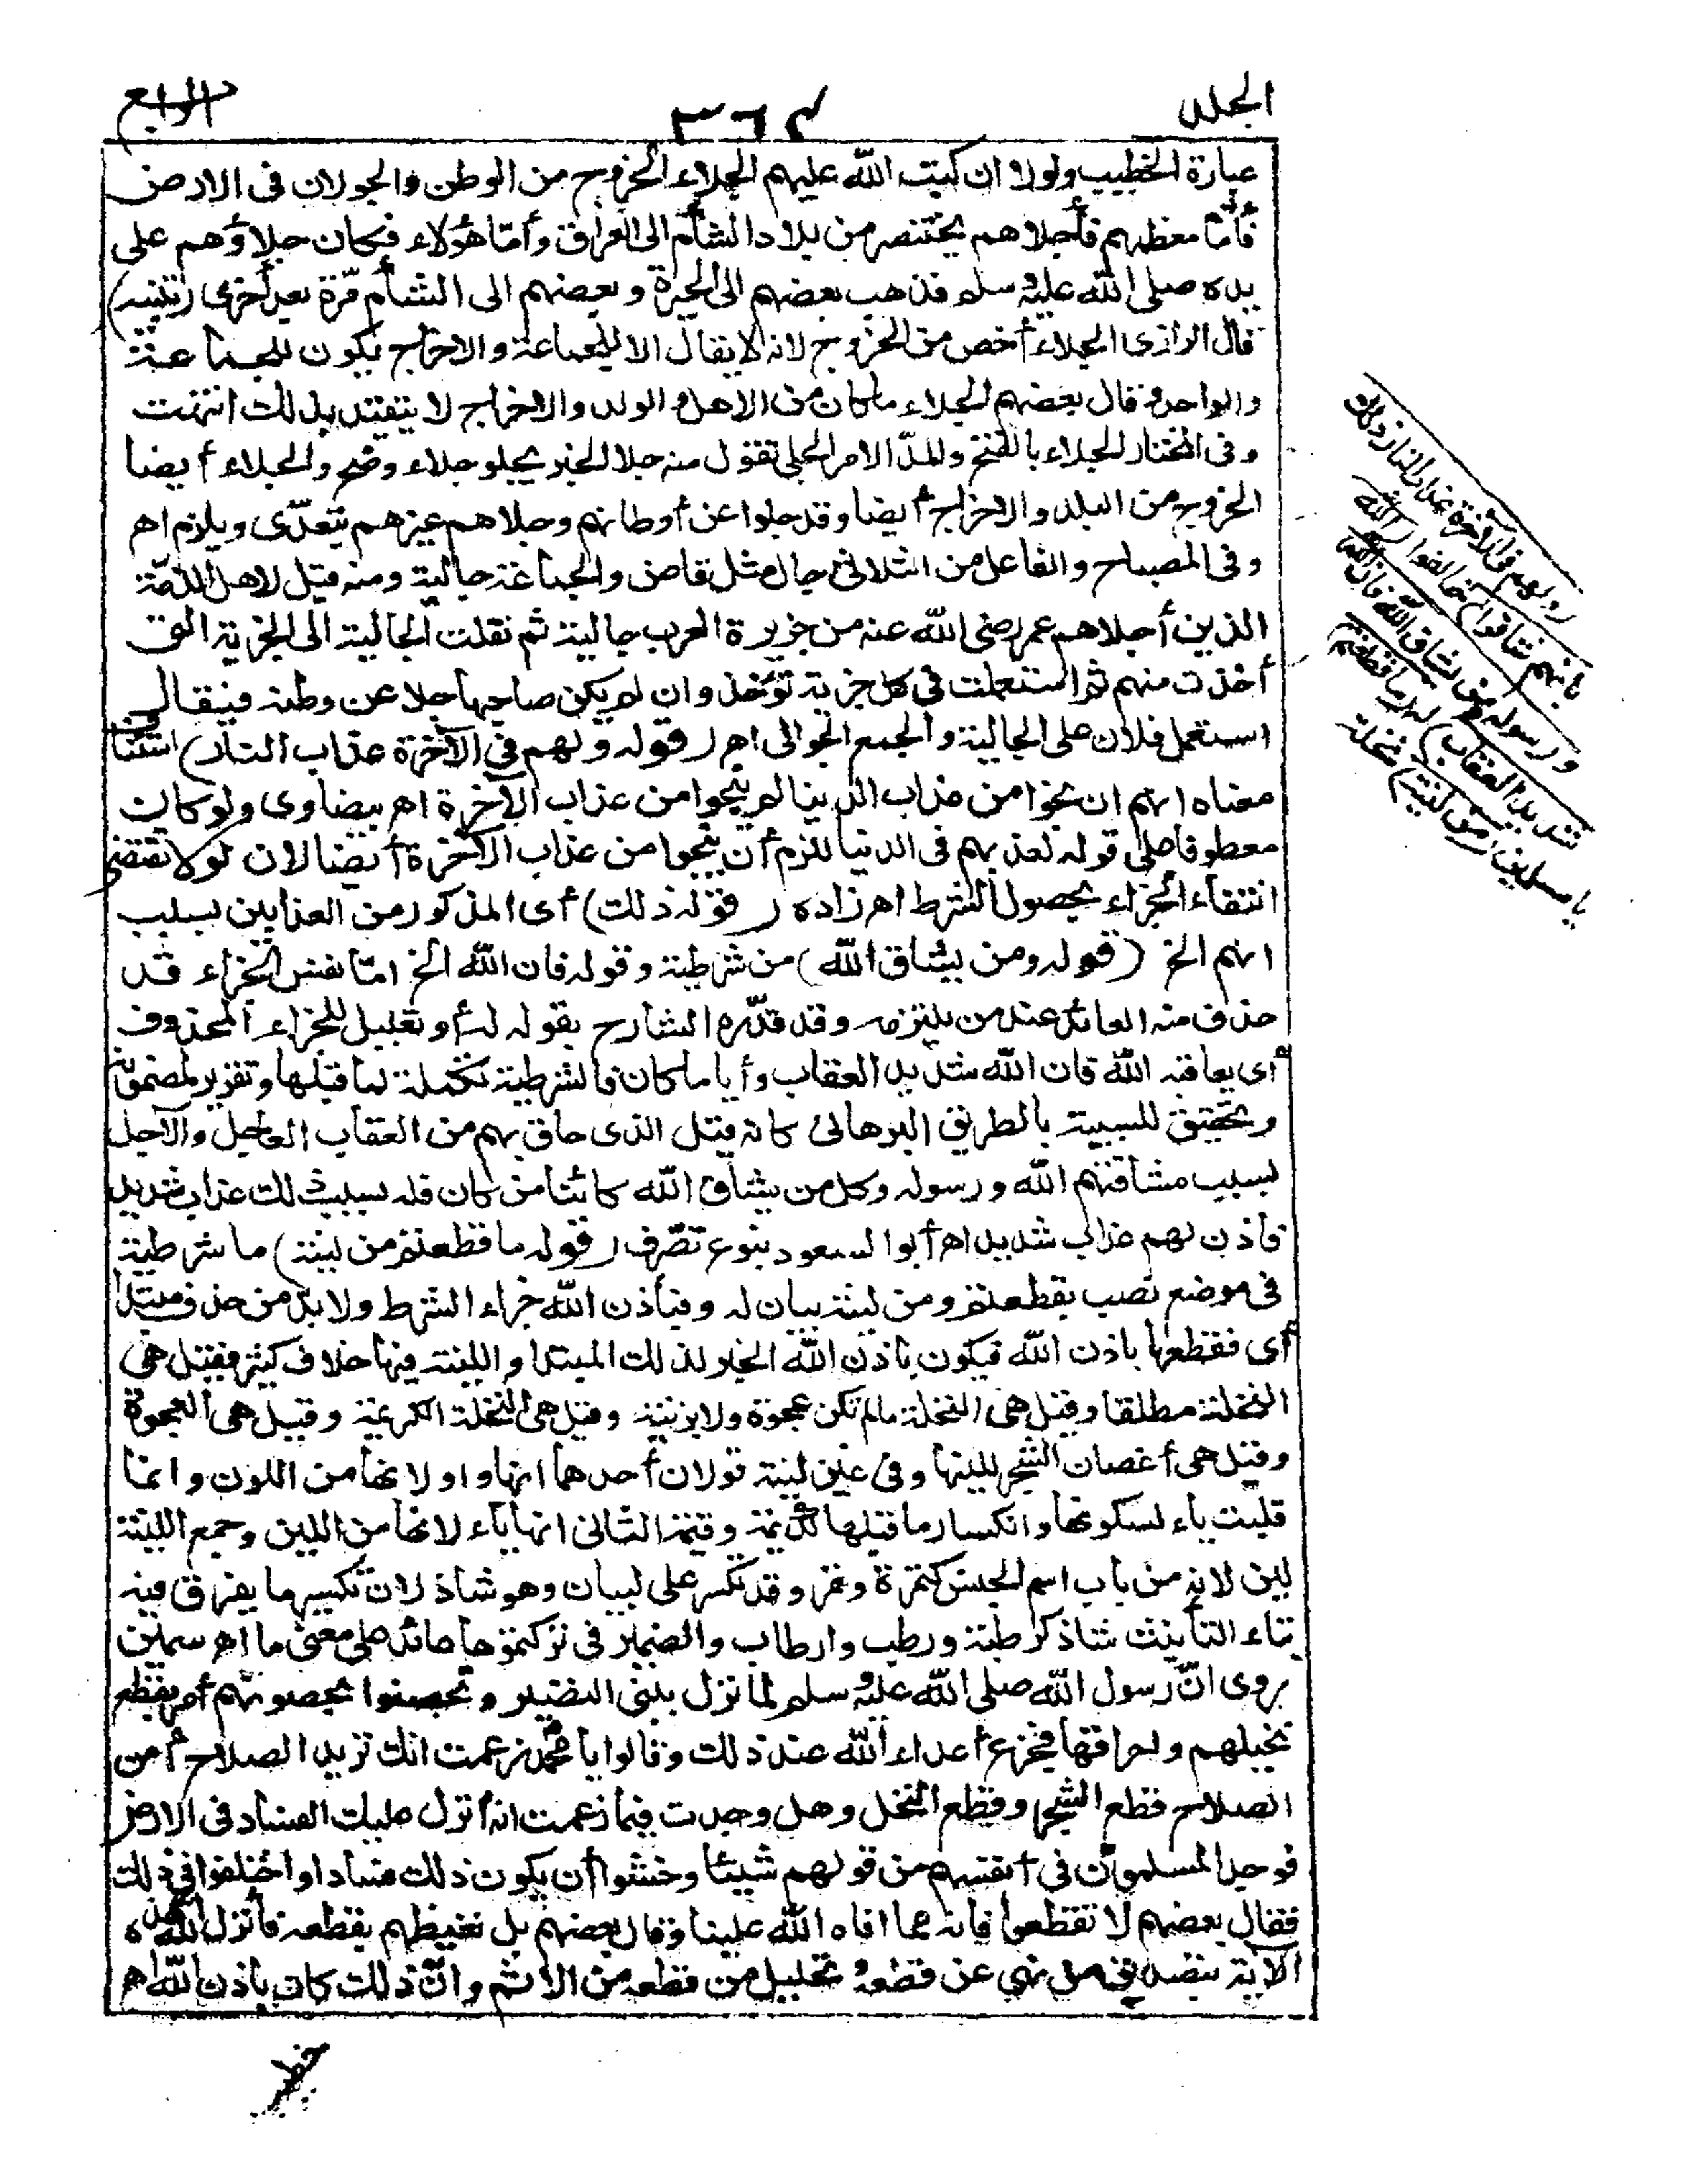 الجلد
٣٦٤
الرابع
عبارة الخطيب ولولا ان كتب الله عليهم الجلاء الخروج من الوطن والجولان فى الارض
فأما معظمهم فأجلاهم بختنصر من بلاد الشأم الى العراق وأمّا هؤلاء فكان جلاؤهم على
يده صلى الله عليه وسلم فذهب بعضهم الى الحيرة وبعضهم الى الشأم مرّة بعد أخرى (تنبيه)
قال الرازى الجلاء أخص من الخروج لانه لا يقال الا للجماعة والاخراج يكون للجماعة
والواحد وقال بعضهم الجلاء ما كان مع الاهل والولد والاخراج لا يتقيد بذلك انتهت
وفى المختار الجلاء بالفتح والمدّ الامر الجلى تقول منه جلا الخبر يجلو جلاء وضح والجلاء أيضا
الخروج من البلد والاخراج أيضا وقد جلوا عن أوطانهم وجلاهم غيرهم يتعدّى ويلزم اهـ
وفى المصباح والفاعل من الثلاثى جال مثل قاض والجماعة جالية ومنه قيل لاهل الذمّة
الذين أجلاهم عمر رضى الله عنه من جزيرة العرب جالية ثم نقلت الجالية الى الجزية التى
أخذت منهم ثم استعملت فى كل جزية تؤخذ وان لم يكن صاحبها جلا عن وطنه فيقال
استعمل فلان على الجالية والجمع الجوالى اهـ (قوله ولهم فى الآخرة عذاب النار) استئناف
معناه انهم ان نجوا من عذاب الدنيا لم ينجوا من عذاب الآخرة اهـ بيضاوى ولو كان
معطوفا على قوله لعذبهم فى الدنيا للزم أن ينجوا من عذاب الآخرة أيضا لان لولا تقتضى
انتفاء الجزاء بحصول الشرط اهـ زاده (قوله ذلك) أى المذكور من العذابين بسبب
انهم الخ (قوله ومن يشاق الله) من شرطية وقوله فان الله الخ امّا نفس الجزاء قد
حذف منه العائد عند من يلتزمه وقد قدّره الشارح بقوله له أو تعليل للجزاء المحذوف
أى يعاقبه الله فان الله شديد العقاب وأياما كان فالشرطية تكملة لما قبلها وتقرير لمضمونه
وتحقيق للسببية بالطريق البرهانى كانه قيل الذى حاق بهم من العقاب العاجل والآجل
بسبب مشاقتهم الله ورسوله وكل من يشاق الله كائنا من كان فله بسبب ذلك عذاب شديد
فاذن لهم عذاب شديد اهـ أبو السعود بنوع تصّرف (قوله ما قطعتم من لينة) ما شرطية
فى موضع نصب بقطعتم ومن لينة بيان له وفبأذن الله جزاء الشرط ولا بدّ من حذف مبتدا
أى فقطعها باذن الله فيكون باذن الله الخبر لذلك المبتدا واللينة فيها خلاف كثير فقيل هى
النخلة مطلقا وقيل هى النخلة ما لم تكن عجوة ولا برنية وقيل هى النخلة الكريمة وقيل هى العجوة
وقيل هى أغصان الشجر للينها وفى عين لينة قولان أحدهما انها واو لانها من اللون وانما
قلبت ياء لسكونها وانكسار ما قبلها كديمة وقيمة الثانى انها ياء لانها من اللين وجمع اللينة
لين لانه من باب اسم الجنس كتمرة وتمر وقد تكسر على ليان وهو شاذ لان تكسير ما يفرق فيه
بتاء التأنيث شاذ كرطبة ورطب وارطاب والضمير فى تركتموها عائد على معنى ما اهـ سمين
يروى انّ رسول الله صلى الله عليه وسلم لما نزل ببنى النضير وتحصنوا بحصونهم أمر بقطع
نخيلهم واحراقها فجزع أعداء الله عند ذلك وقالوا يا محمد زعمت انك تريد الصلاح أمن
الصلاح قطع الشجر وقطع النخل وهل وجدت فيما زعمت انه أنزل عليك الفساد فى الارض
فوجد المسلمون فى أنفسهم من قولهم شيئا وخشوا أن يكون ذلك فسادا واختلفوا فى ذلك
فقال بعضهم لا تقطعوا فانه مما افاه الله علينا وقال بعضهم بل نغيظهم بقطعه فأنزل الله هذه
الآية بتصديق من نهى عن قطعه وتحليل من قطعه من الاثم وانّ ذلك كان باذن الله اهـ
خطيب
(ولهم فى الآخرة عذاب النار ذلك
بانهم شاقوا) خالفوا (الله
ورسوله ومن يشاق الله فان الله
شديد العقاب) له (ما قطعتم)
يا مسلمين (من لينة) نخلة